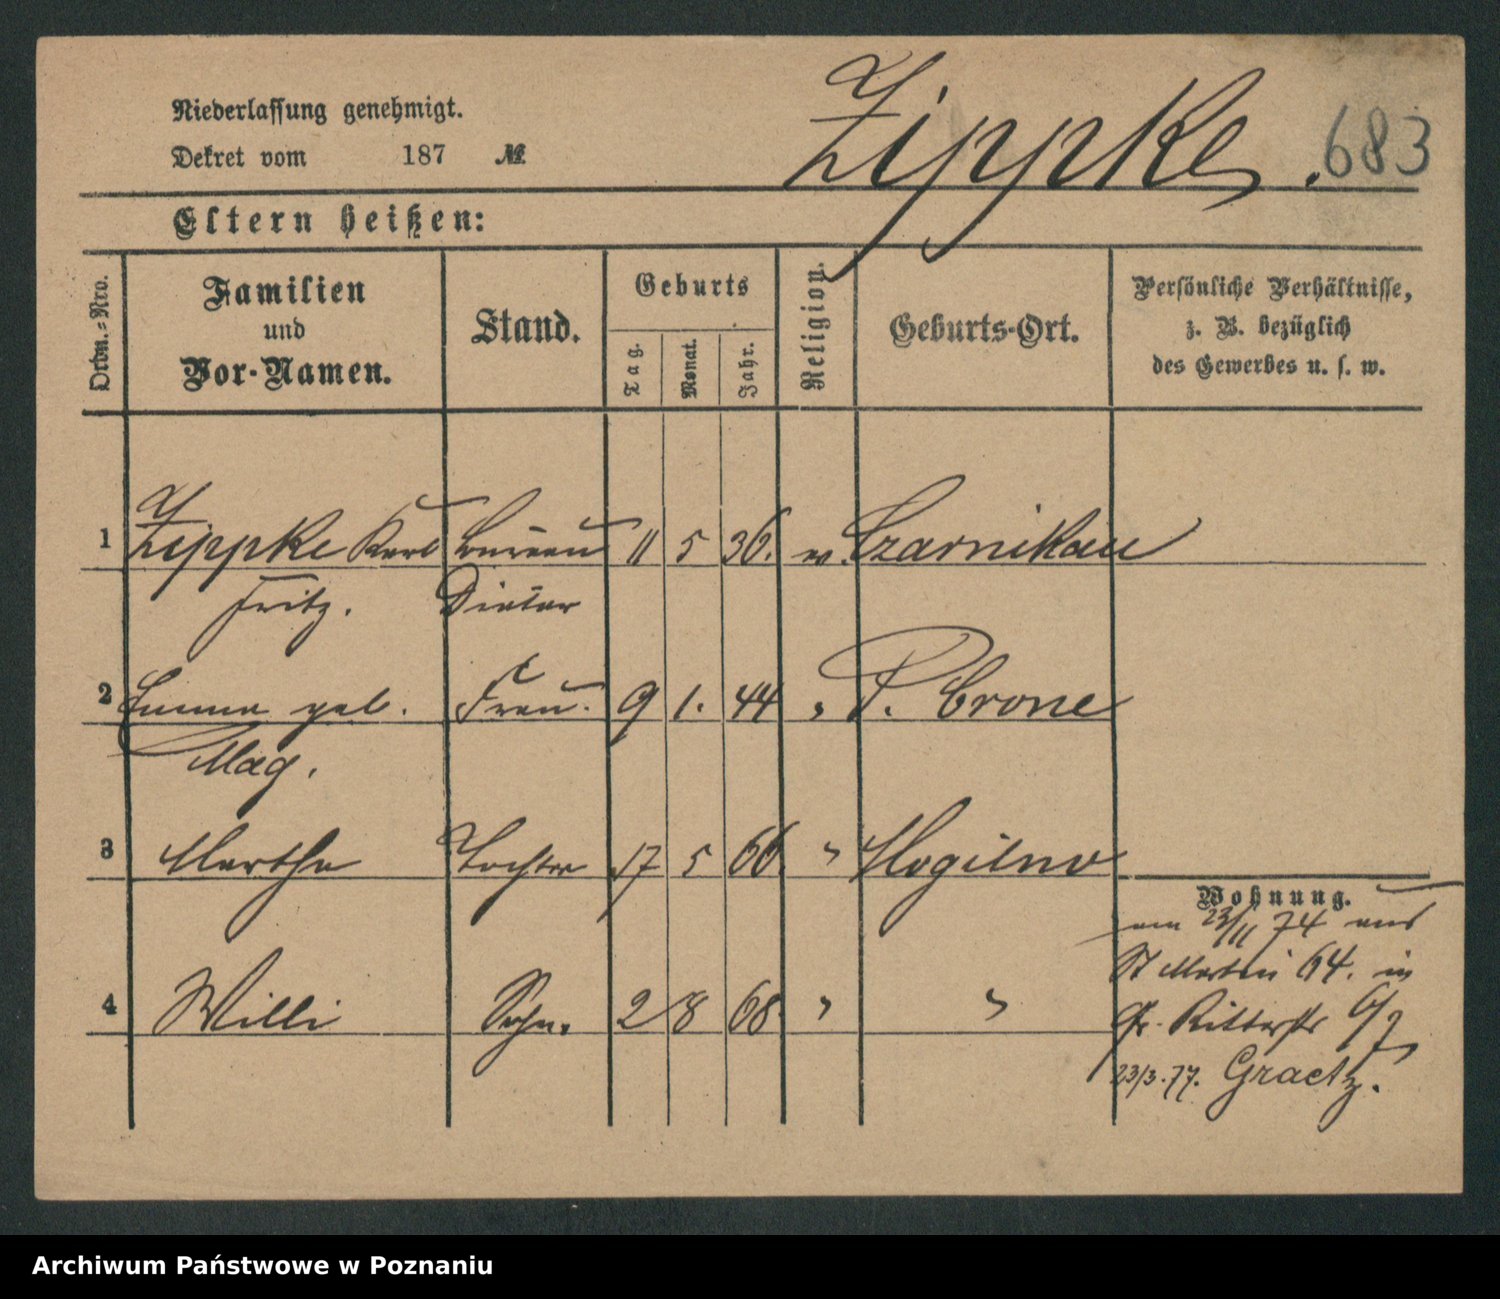 Niederlassung genehmigt.
Dekret vom 187 №
Zippke. 683
Eltern heißen:
Ordn.-Nro.
Familien
und
Vor-Namen.
Stand.
Geburts
Tag.
Monat.
Jahr.
Religion.
Geburts-Ort.
Persönliche Verhältnisse,
z. B. bezüglich
des Gewerbes u. s. w.
1 Zippke Karl Bureau 11 5 36. ev. Czarnikau
Fritz. Diätar
2 Emma geb. Frau. 9 1. 44 " P. Crone
Mag.
3 Martha Tochter 17 5 66 " Mogilno
4 Willi Sohn. 2 8 68 " "
Wohnung.
am 23/11 74 aus
St Martin 64. in
Gr. Ritterstr 6/7
23/3.77. Graetz.
Archiwum Państwowe w Poznaniu